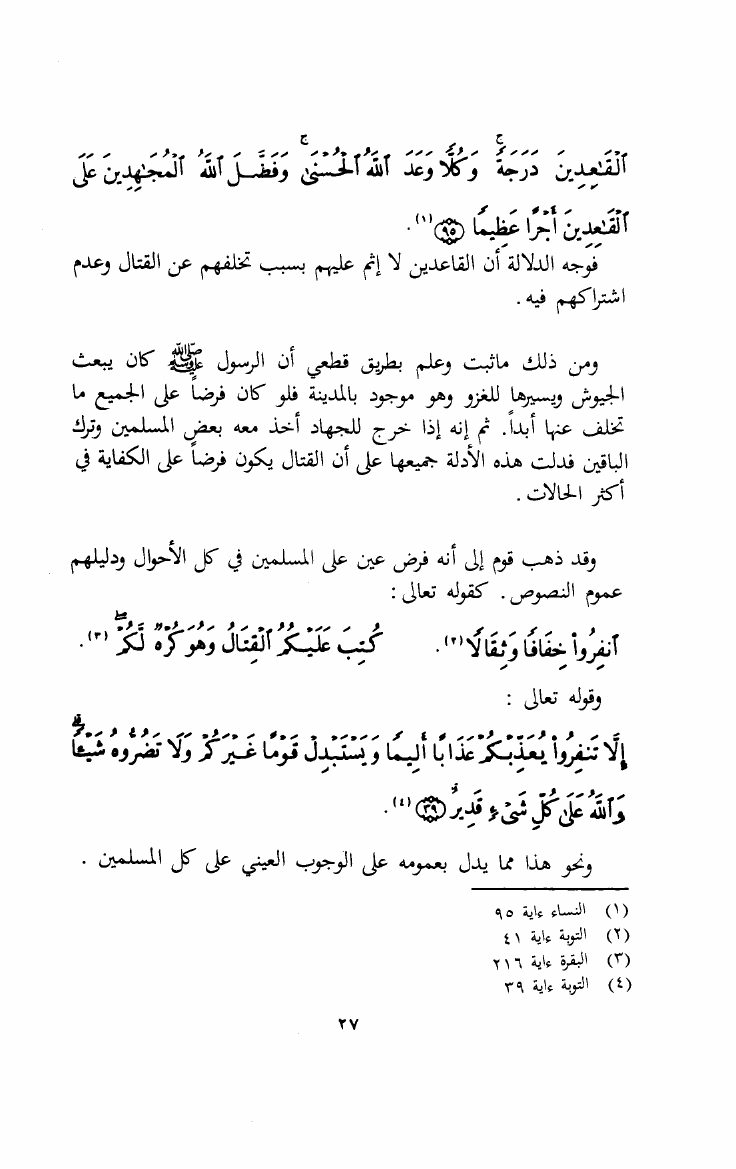 ٱلْقَٰعِدِينَ دَرَجَةً ۚ وَكُلًّا وَعَدَ ٱللَّهُ ٱلْحُسْنَىٰ ۚ وَفَضَّلَ ٱللَّهُ ٱلْمُجَٰهِدِينَ عَلَى
ٱلْقَٰعِدِينَ أَجْرًا عَظِيمًا ﴿٩٥﴾ (١).
فوجه الدلالة أن القاعدين لا إثم عليهم بسبب تخلفهم عن القتال وعدم
اشتراكهم فيه .
ومن ذلك ماثبت وعلم بطريق قطعي أن الرسول ﷺ كان يبعث
الجيوش ويسيرها للغزو وهو موجود بالمدينة فلو كان فرضاً على الجميع ما
تخلف عنها أبداً. ثم إنه إذا خرج للجهاد أخذ معه بعض المسلمين وترك
الباقين فدلت هذه الأدلة جميعها على أن القتال يكون فرضاً على الكفاية في
أكثر الحالات .
وقد ذهب قوم إلى أنه فرض عين على المسلمين في كل الأحوال ودليلهم
عموم النصوص . كقوله تعالى :
ٱنفِرُوا۟ خِفَافًا وَثِقَالًا (٢). كُتِبَ عَلَيْكُمُ ٱلْقِتَالُ وَهُوَ كُرْهٌ لَّكُمْ ۖ (٣).
وقوله تعالى :
إِلَّا تَنفِرُوا۟ يُعَذِّبْكُمْ عَذَابًا أَلِيمًا وَيَسْتَبْدِلْ قَوْمًا غَيْرَكُمْ وَلَا تَضُرُّوهُ شَيْـًٔا ۗ
وَٱللَّهُ عَلَىٰ كُلِّ شَىْءٍ قَدِيرٌ ﴿٣٩﴾ (٤).
ونحو هذا مما يدل بعمومه على الوجوب العيني على كل المسلمين .
(١) النساء ءاية ٩٥
(٢) التوبة ءاية ٤١
(٣) البقرة ءاية ٢١٦
(٤) التوبة ءاية ٣٩
٢٧